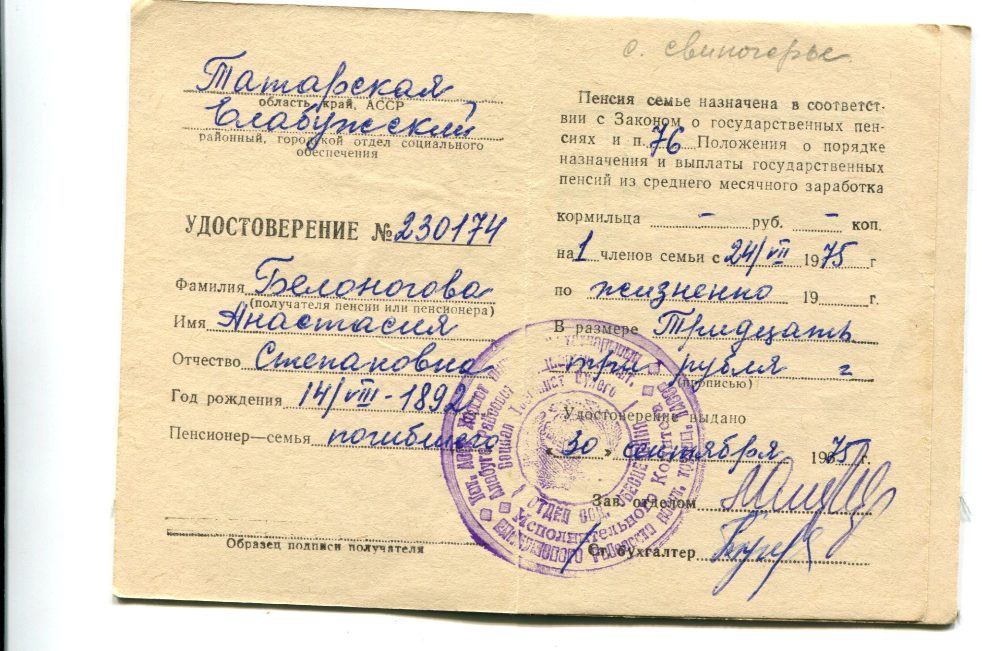 с. свиногорье
Татарская
область, край, АССР
Елабужский
районный, городской отдел социального
обеспечения
УДОСТОВЕРЕНИЕ № 230174
Фамилия Белоногова
(получателя пенсии или пенсионера)
Имя Анастасия
Отчество Степановна
Год рождения 14/VIII-1892
Пенсионер—семья погибшего
Образец подписи получателя
Пенсия семье назначена в соответст-
вии с Законом о государственных пен-
сиях и п. 76 Положения о порядке
назначения и выплаты государственных
пенсий из среднего месячного заработка
кормильца – руб. – коп.
на 1 членов семьи с 24/VII 1975 г
по жизненно 19 г.
В размере Тридцать
три рубля
(прописью)
Удостоверение выдано
« 30 » сентября 1975 г.
Зав. отделом
Ст. бухгалтер
ОТДЕЛ СОЦ. ОБЕСПЕЧЕНИЯ
Исполнительного Комитета